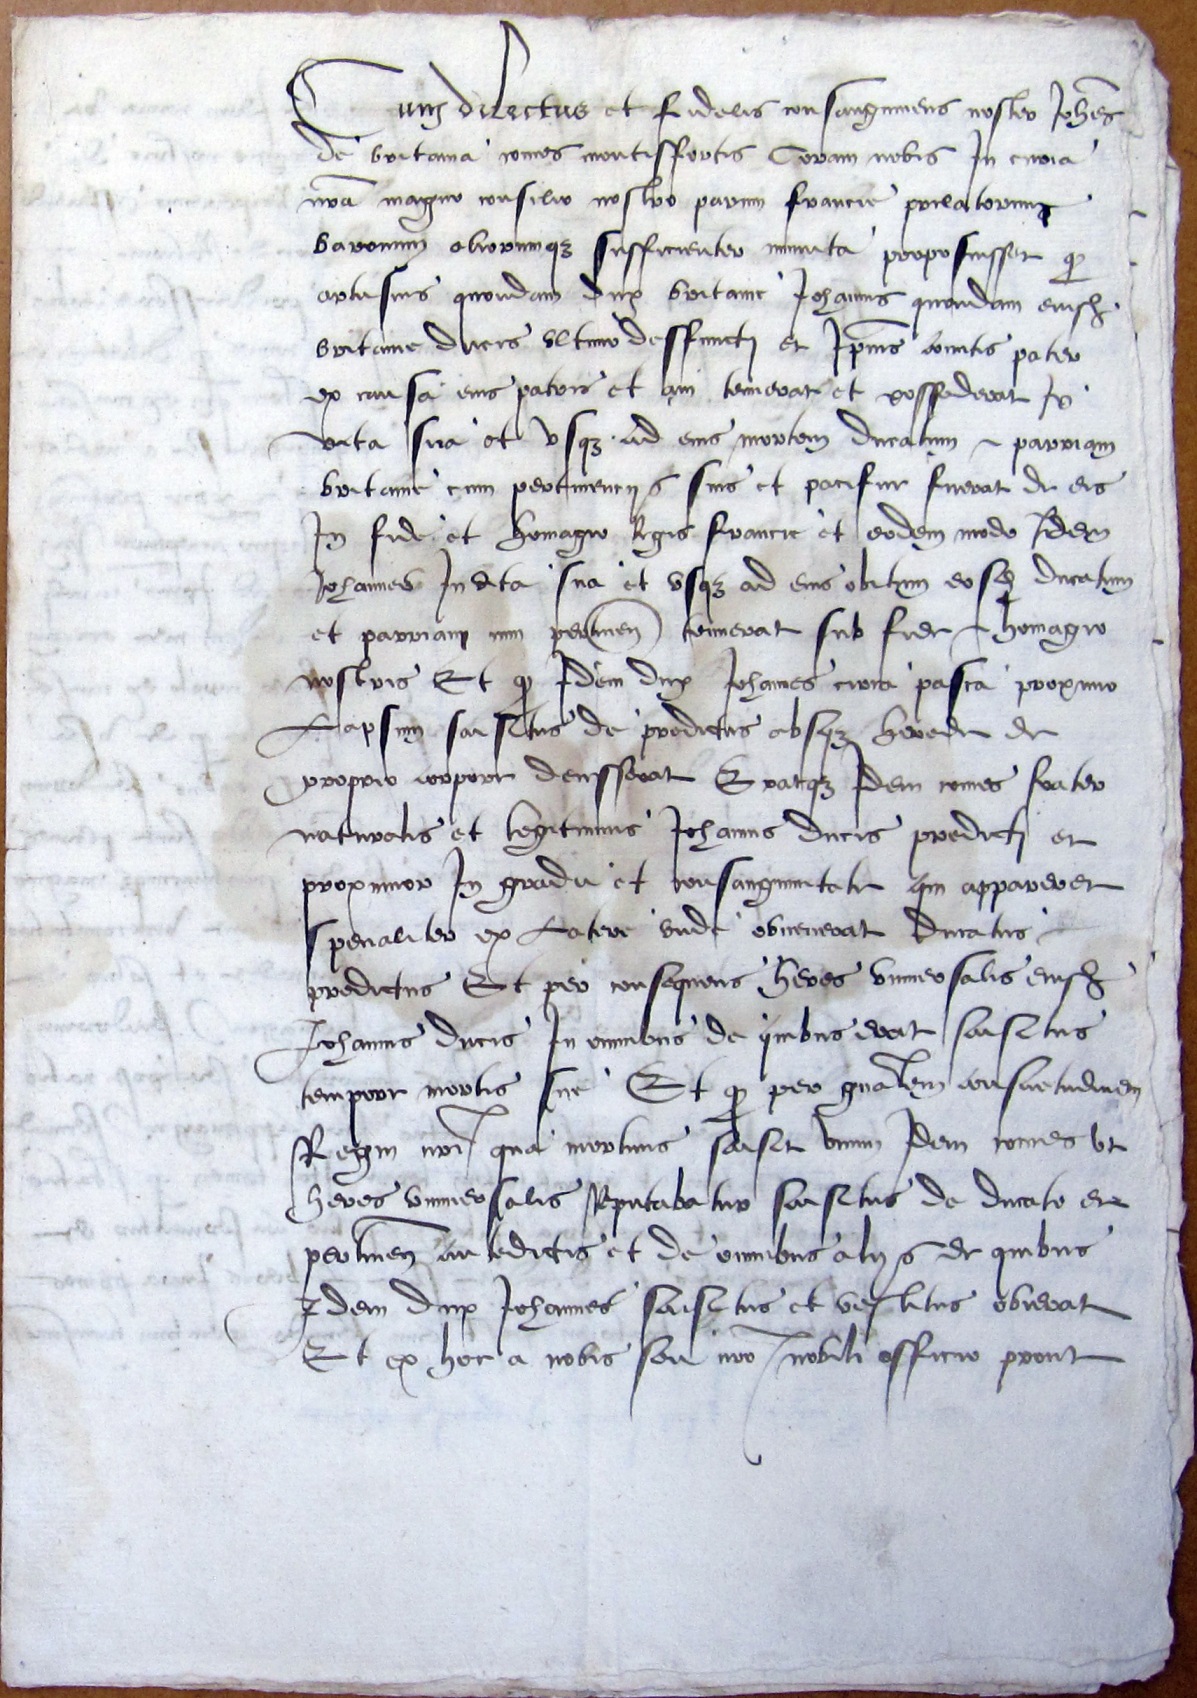 Cum dilectus et fidelis consanguineus noster Johēs
de britania comes montisffortis Coram nobis In curia
nrā magno consilio nostro parium francie prelatorum
baronum aliorumqz sufficienter munita proposuisset q̄
artusius quondam dux britanie Johannis quondam eiusd
britanie ducis ultimo deffuncti et Ipīus comitis pater
ex causa eius patris et aui tenuerat et possederat In
vita sua et usqz ad eius mortem ducatum et parriam
britanie cum pertinenciis suis et pacifice fuerat de eis
In fide et homagio Regis francie et eodem modo Idem
Johannes In vita sua et usqz ad eius obitum eosd ducatum
et parriam cum pertinen tenuerat sub fide et homagio
nostris Et q̄ Idem dux Johannes circa pasca proximo
Lapsum saisitus de predictis absqz herede de
proprio corpore decesserat Eratqz Idem comes frater
naturalis et legitimus Johannis ducis predicti et
proximior In gradu et consanguinitate qui appareret
specialiter ex Latere unde obvenerat ducatus
predictus Et per consequens heres universalis eiusd
Johannis ducis In omnibus de quibus erat saisitus
tempore mortis sue Et q̄ per gnālem consuetudinem
Regni nrī qua mortuus saisit vivum Idem comes ut
heres universalis Reputabatur saisitus de ducatu et
pertinen antedictis et de omnibus aliis de quibus
Idem dux Johannes saisitus et vestitus obierat
Et ex hoc a nobis seu nrō nobili officio prout